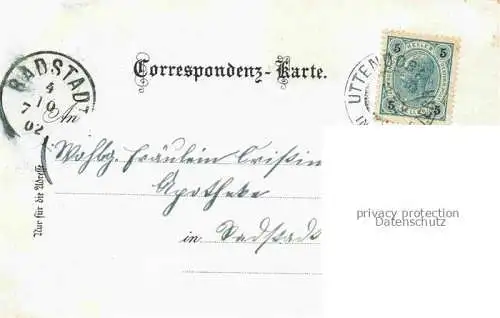 RADSTADT
4
10
7
02
Correspondenz-Karte.
UTTENDORF
5 5
5 5
An
Wohlg. Fräulein Cristin
Apotheke
in Radstadt
Nur für die Adresse
privacy protection
Datenschutz